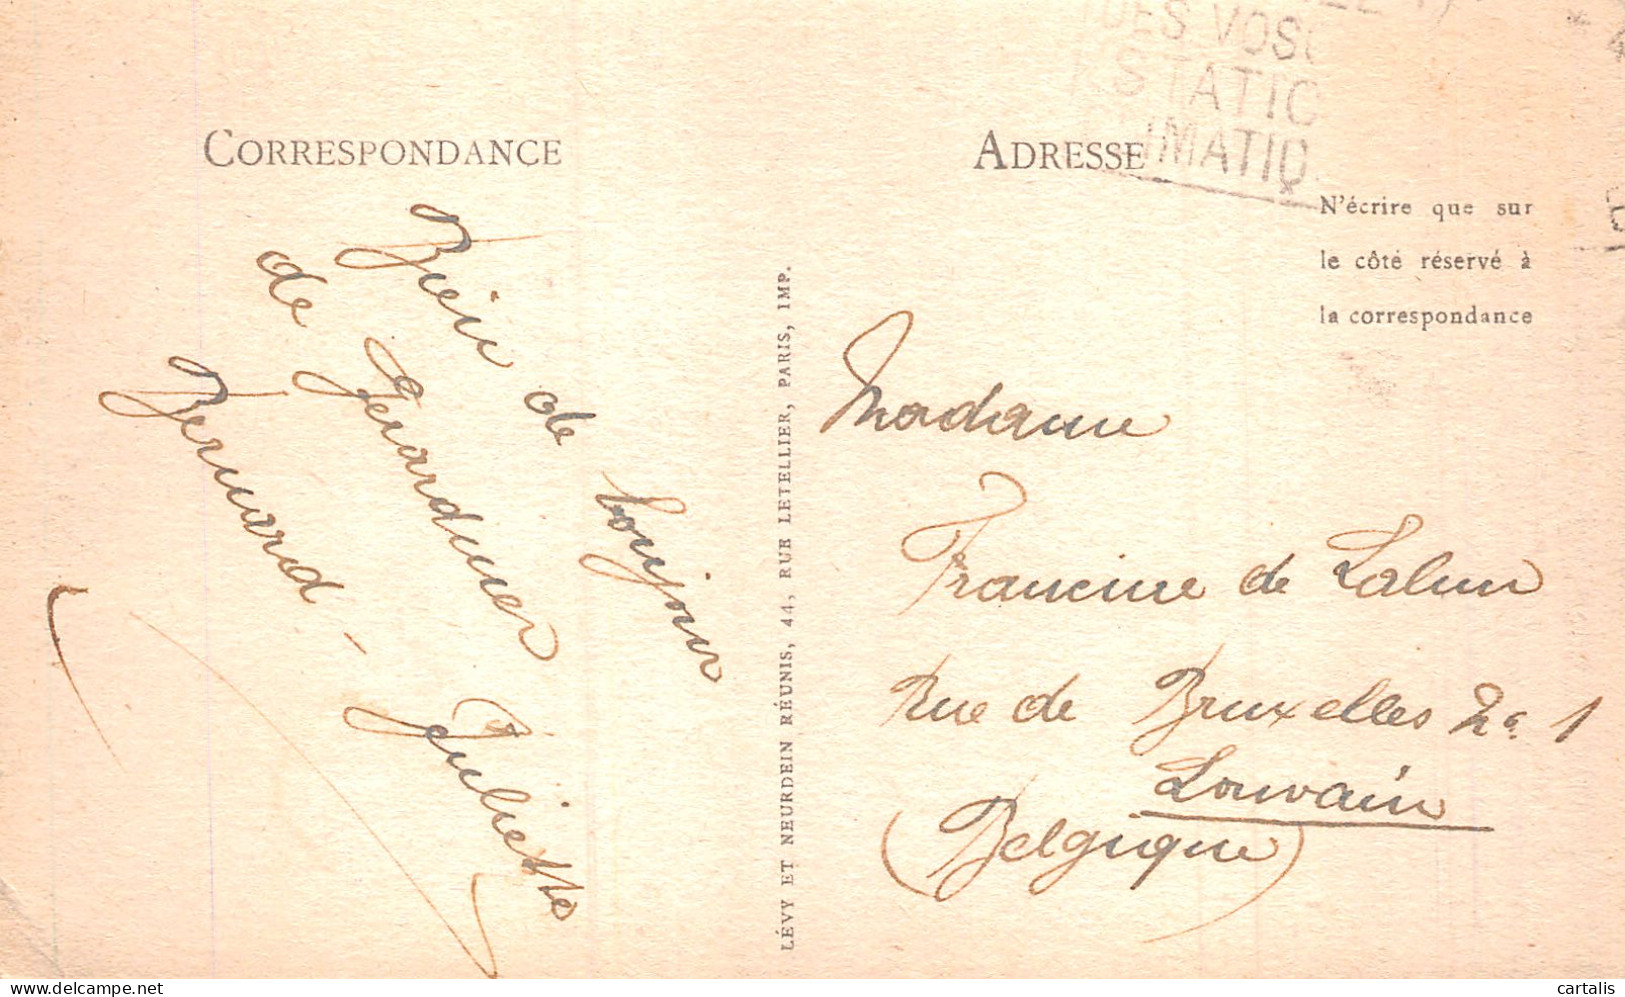 CORRESPONDANCE
ADRESSE
DES VOS
STATIO
IMATIQ
N'écrire que sur
le côté réservé à
la correspondance
Bien de bonjour
de Gerardmer
Bernard - Juliette
LÉVY ET NEURDEIN RÉUNIS, 44, RUE LETELLIER, PARIS, IMP.
Madame
Francine de Lalun
Rue de Bruxelles 2a 1
Louvain
(Belgique)
delcampe.net
cartalis